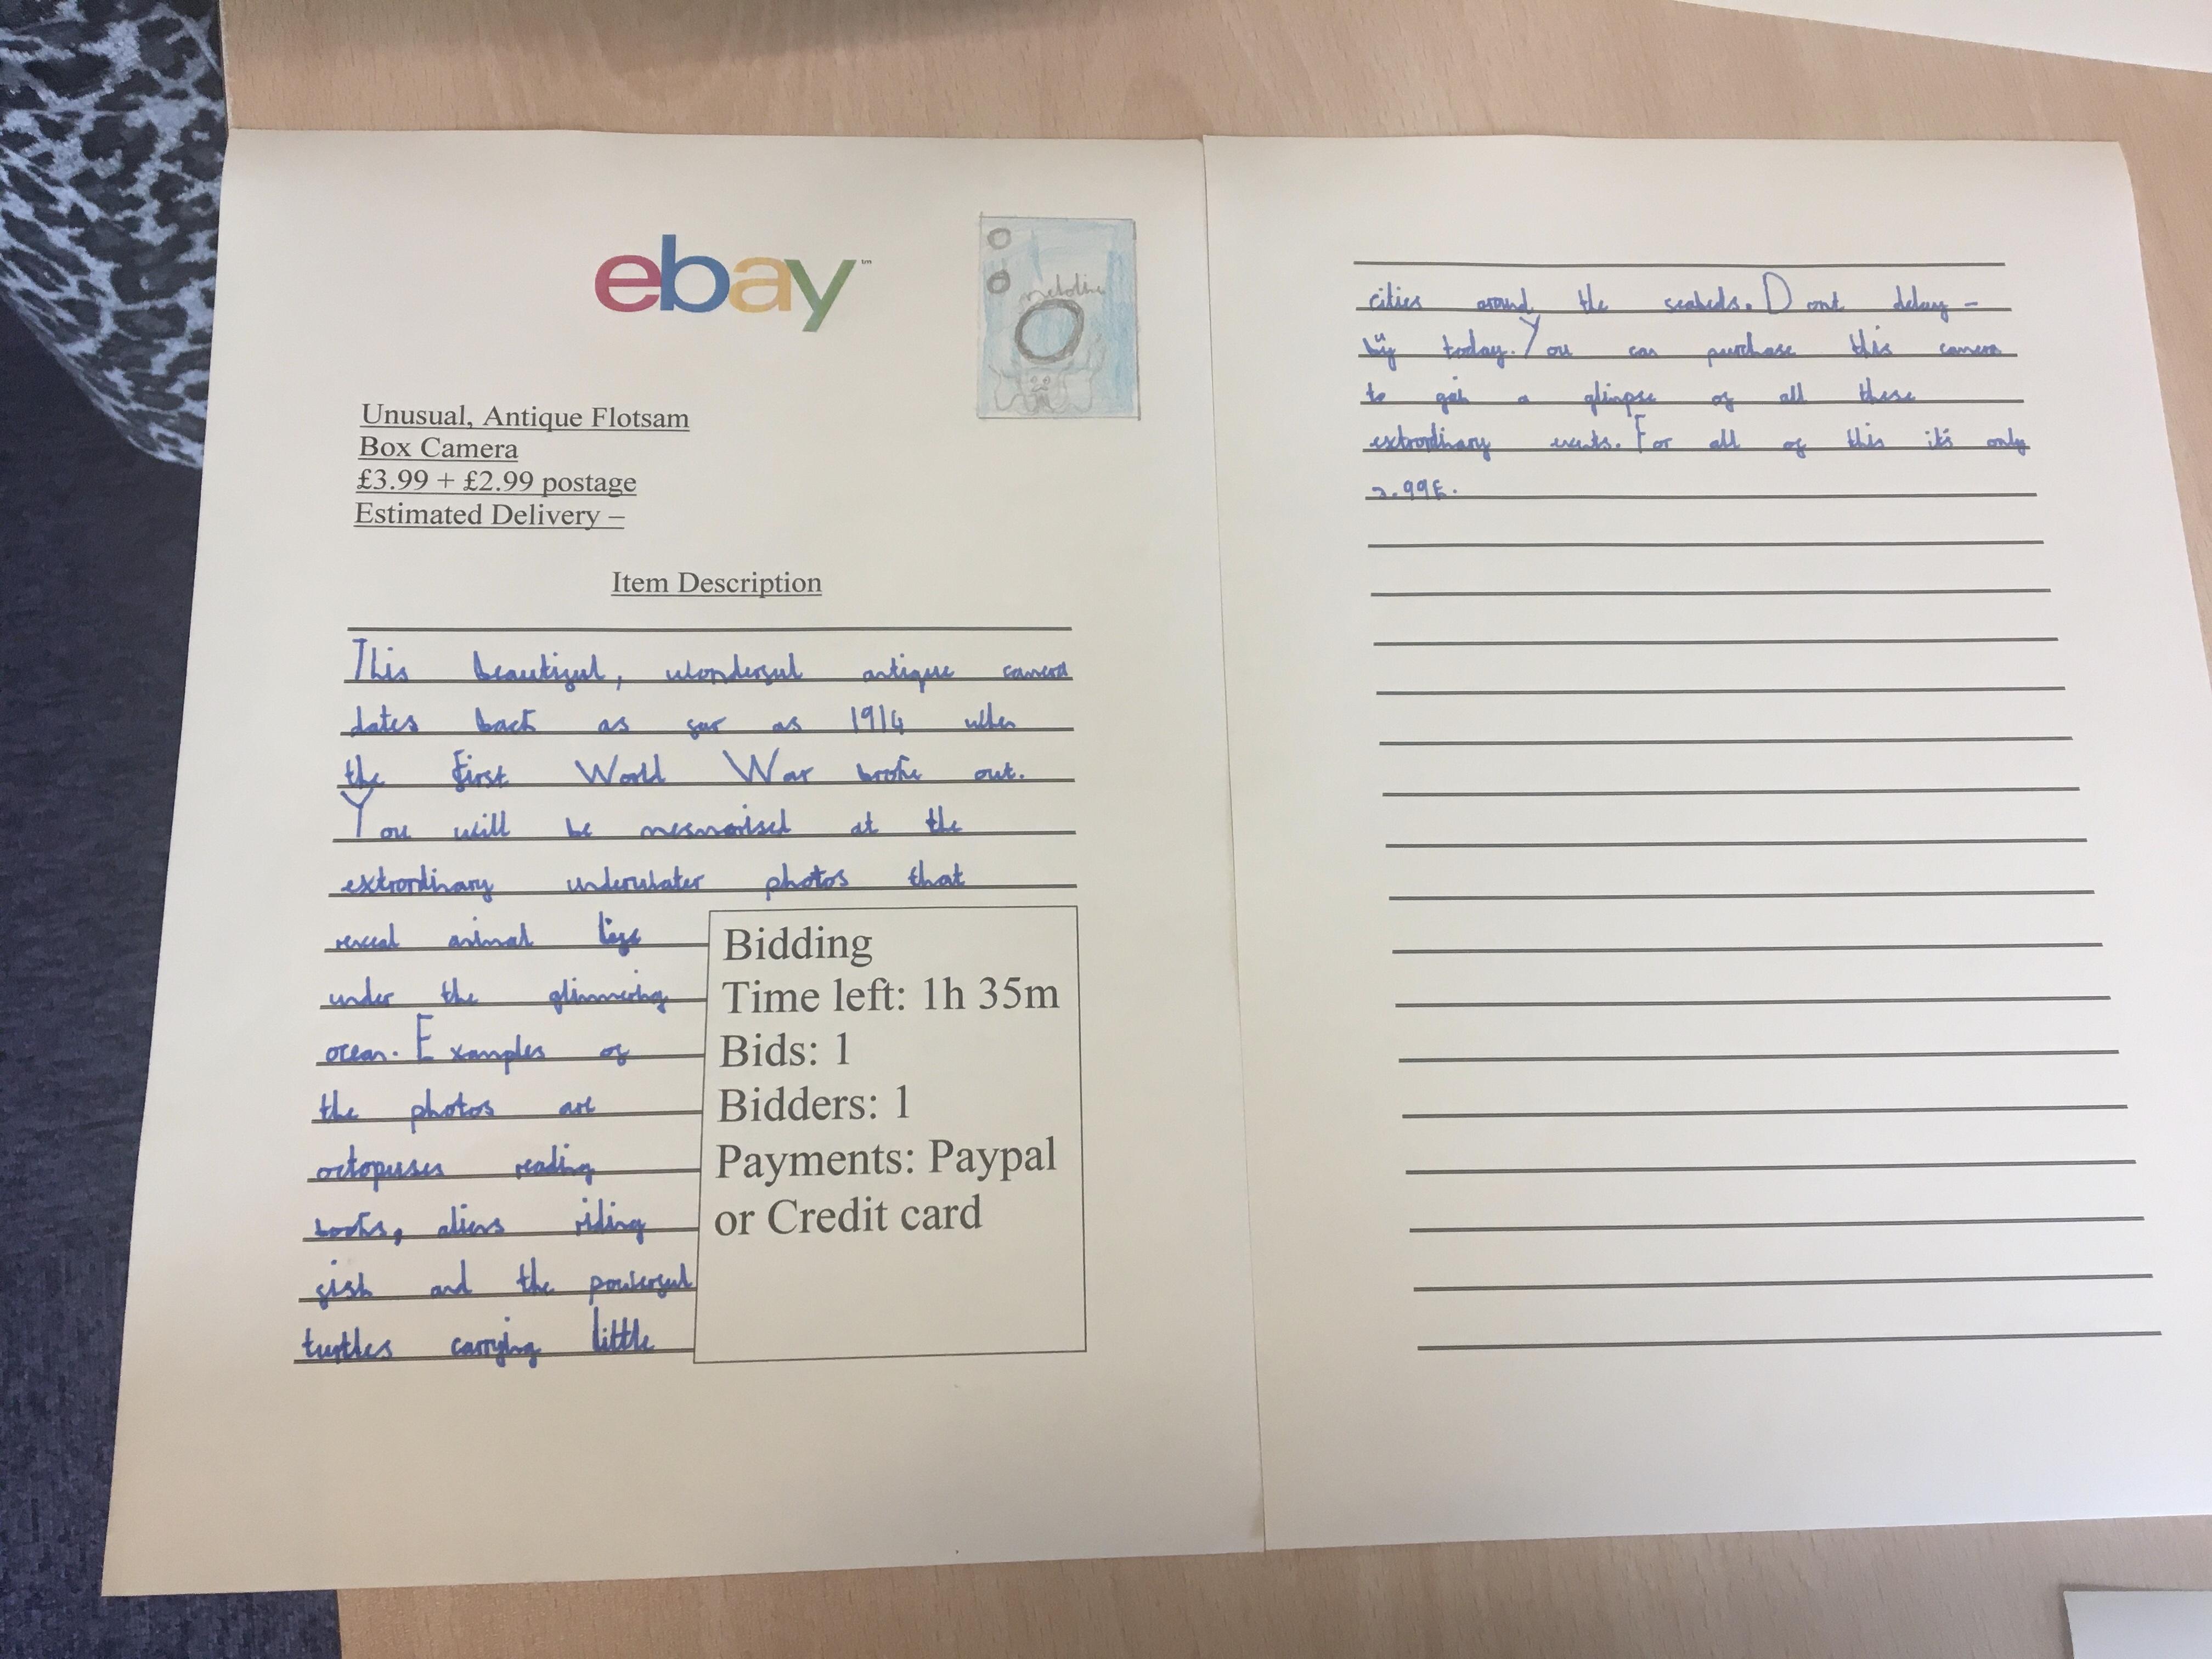 ebay™
Unusual, Antique Flotsam
Box Camera
£3.99 + £2.99 postage
Estimated Delivery –
Item Description
This beautiful, wonderful antique camera
dates back as far as 1914 when
the first World War broke out.
You will be mesmorised at the
extrordinary underwater photos that
reveal animal life
under the glimmering
ocean. Examples of
the photos are
octopuses reading
books, aliens riding
fish and the powerful
turtles carrying little
Bidding
Time left: 1h 35m
Bids: 1
Bidders: 1
Payments: Paypal
or Credit card
cities around the seabeds. Dont delay -
buy today. You can purchase this camera
to gain a glimpse of all these
extrordinary events. For all of this it's only
2.99£.